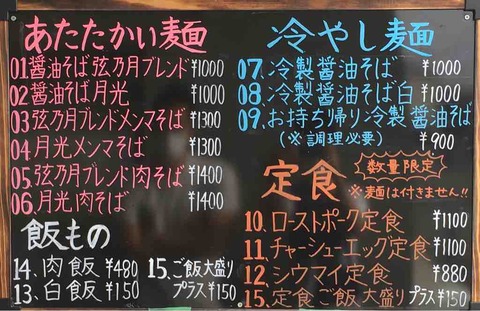 あたたかい麺
01醤油そば弦乃月ブレンド¥1000
02醤油そば月光 ¥1000
03弦乃月ブレンドメンマそば ¥1300
04.月光メンマそば ¥1300
05.弦乃月ブレンド肉そば ¥1400
06.月光肉そば ¥1400
飯もの
14、肉飯 ¥480
15、ご飯大盛り プラス¥150
13、白飯 ¥150
冷やし麺
07、冷製醤油そば ¥1000
08、冷製醤油そば白 ¥1000
09、お持ち帰り冷製醤油そば
(※調理必要) ¥900
定食
数量限定
※麺は付きません!!
10、ローストポーク定食 ¥1100
11、チャーシューエッグ定食¥1100
12、シウマイ定食 ¥880
15、定食ご飯大盛り プラス¥150